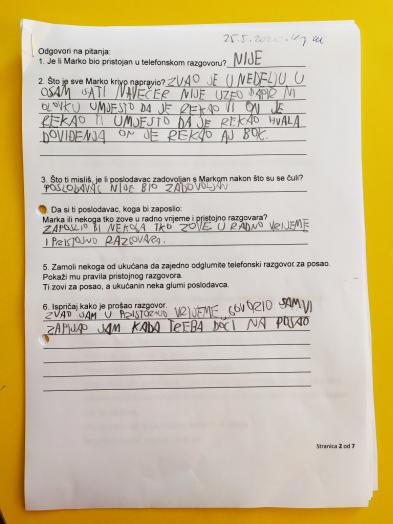 25.5.2020.
Odgovori na pitanja:
1. Je li Marko bio pristojan u telefonskom razgovoru? NIJE
2. Što je sve Marko krivo napravio? ZVAO JE U NEDELJU U
OSAM SATI NAVEČER NIJE UZEO PAPIR NI
OLOVKU UMJESTO DA JE REKAO VI ON JE
REKAO TI UMJESTO DA JE REKAO HVALA
DOVIĐENJA ON JE REKAO AJ BOK.
3. Što ti misliš, je li poslodavac zadovoljan s Markom nakon što su se čuli?
POSLODAVAC NIJE BIO ZADOVOLJAN
Da si ti poslodavac, koga bi zaposlio:
Marka ili nekoga tko zove u radno vrijeme i pristojno razgovara?
ZAPOSLIO BI NEKOGA TKO ZOVE U RADNO VRIJEME
I PRISTOJNO RAZGOVARA.
5. Zamoli nekoga od ukućana da zajedno odglumite telefonski razgovor za posao.
Pokaži mu pravila pristojnog razgovora.
Ti zovi za posao, a ukućanin neka glumi poslodavca.
6. Ispričaj kako je prošao razgovor.
ZVAO SAM U PRISTOJNO VRIJEME, GOVORIO SAM VI
ZAPISAO SAM KADA TREBA DOĆI NA POSAO
Stranica 2 od 7